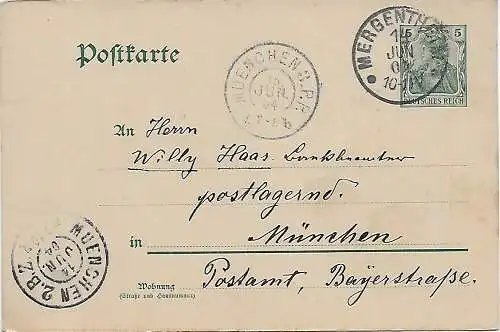 Postkarte
MERGENTH
JUN
10-11V
5 5
DEUTSCHES REICH
MUENCHEN H.P.P.
JUN
An Herrn
Willy Haas Bankbeamter
postlagernd.
in München
Wohnung
(Straße und Hausnummer)
Postamt, Bayerstraße.
MUENCHEN 2.B.Z.
14
JUN
04